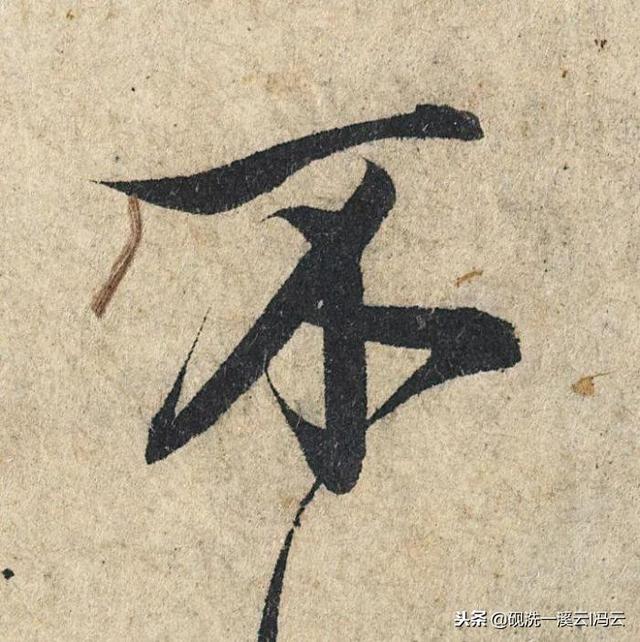 不
头条 @砚洗一溪云l冯云